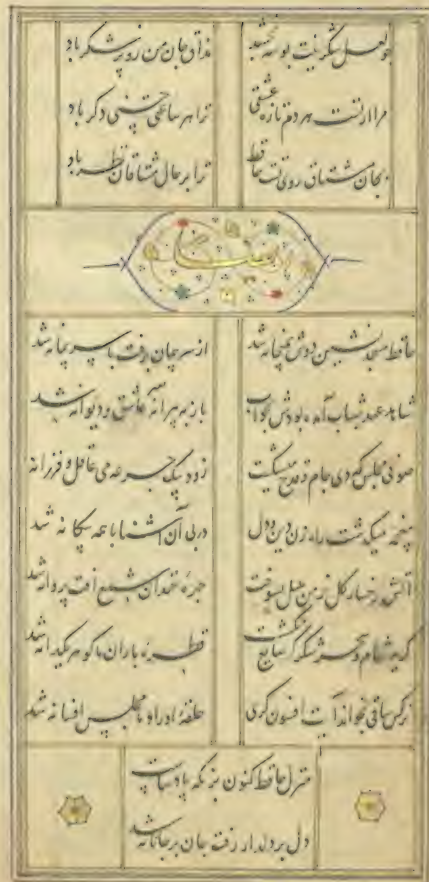 چو لعل شکرینت بوسه بخشد
مذاق جان من زو پر شکر باد
مرا از تست هر دم تازه عشقی
ترا هر ساعتی حسنی دکر باد
بجان مشتاق روی تست حافظ
ترا بر حال مشتاقان نظر باد
ایضا
حافظ مسجد نشین دوش بمیخانه شد
از سر پیمان برفت با سر پیمانه شد
شاهد عهد شباب آمده بودش بخواب
باز به پیرانه سر عاشق و دیوانه شد
صوفی مجلس که دی جام و قدح میشکست
زود بیک جرعه می عاقل و فرزانه
مغبچه میکذشت راه زن دین و دل
در پی آن آشنا با همه بیکانه شد
آتش رخسار کل خرمن بلبل بسوخت
چهره خندان شمع آفت پروانه شد
کریه شام و سحر شکر که ضایع نکشت
قطره باران ما کوهر یکدانه شد
نرکس ساقی بخواند آیت افسون کری
حلقه اوراد ما مجلس افسانه شد
منزل حافظ کنون بزمکه پادشاست
دل بر دلدار رفت جان بر جانانه شد